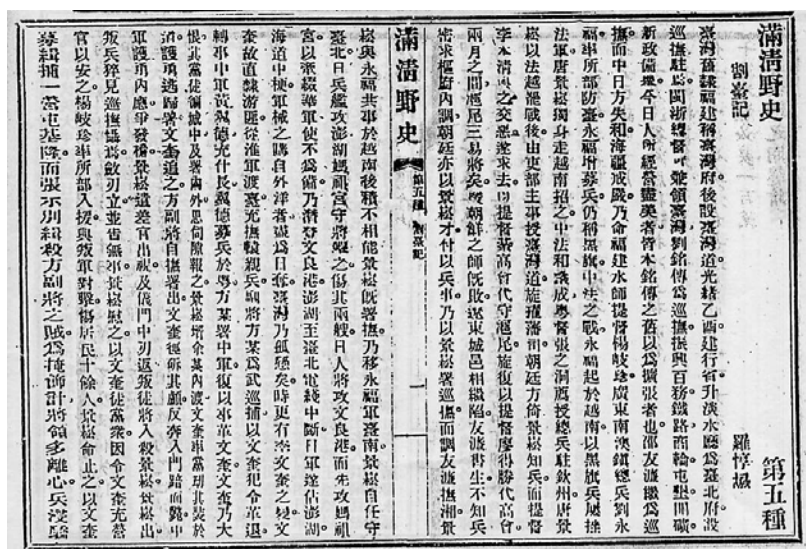 滿清野史
第五種
割臺記
羅惇曧
臺灣舊隸福建稱臺灣府後設臺灣道光緒乙酉建行省升淡水廳爲臺北府設
巡撫駐焉閩浙總督兼領臺灣劉銘傳爲巡撫振興百務鐵路商輪屯墾開礦
新政備舉今日人所經營盡美者皆本銘傳之舊以爲擴張者也邵友濂繼爲巡
撫而中日方失和海疆戒嚴乃命福建水師提督楊岐珍廣東南澳鎮總兵劉永
福率所部防臺永福增募兵仍稱黑旗中法之戰永福起於越南以黑旗兵屢挫
法軍唐景崧獨身走越南招之中法和議成粵督張之洞薦授總兵駐欽州唐景
崧以法越罷戰後由吏部主事授臺灣道旋擢藩司朝廷方倚景崧知兵而提督
李本清與之交惡遂求去以提督綦高會代守滬尾旋復以提督廖得勝代高會
兩月之間滬尾三易將矣援朝鮮之師既敗遼東城邑相繼陷友濂書生不知兵
密求樞府內調朝廷亦以景崧才付以兵事乃以景崧署巡撫而調友濂撫湘景
滿清野史
第五種 割臺記
一
崧與永福共事於越南後積不相能景崧既署撫乃移永福軍臺南景崧自任守
臺北日兵艦攻澎湖媽祖宮守將毀之傷其兩艘日人將攻文良港而先攻媽祖
宮以牽綴華軍使不爲備乃潛登文良港澎湖至臺北電綫中斷日軍遂佔澎湖
海道中梗軍械之購自外洋者盡爲日奪臺灣乃孤懸矣時更有李文奎之變文
奎故直隸游匪從淮軍渡臺充撫轅親兵副將方某爲武巡捕以文奎犯令革退
轉事中軍黃翼德充什長翼德募兵於粵方某署中軍復以事革文奎文奎乃大
恨其黨徒徧城中及署內外思伺隙報之景崧壻余某內渡文奎率黨刼其裝於
道護勇逃歸署文奎追之方副將自撫署出文奎徑斫其顱反奔入門踣而斃中
軍護勇內應爭發槍景崧遣差官出視及儀門中刃返叛徒將入殺景崧景崧出
叛兵猝見巡撫慴爲斂刃立並告無事景崧慰之以文奎徒黨衆因令文奎充營
官以安之楊岐珍率所部入援與叛軍對擊傷居民十餘人景崧命止之以文奎
募緝捕一營屯基隆而張示別緝殺方副將之賊爲掩飾計將領多離心兵浸驕